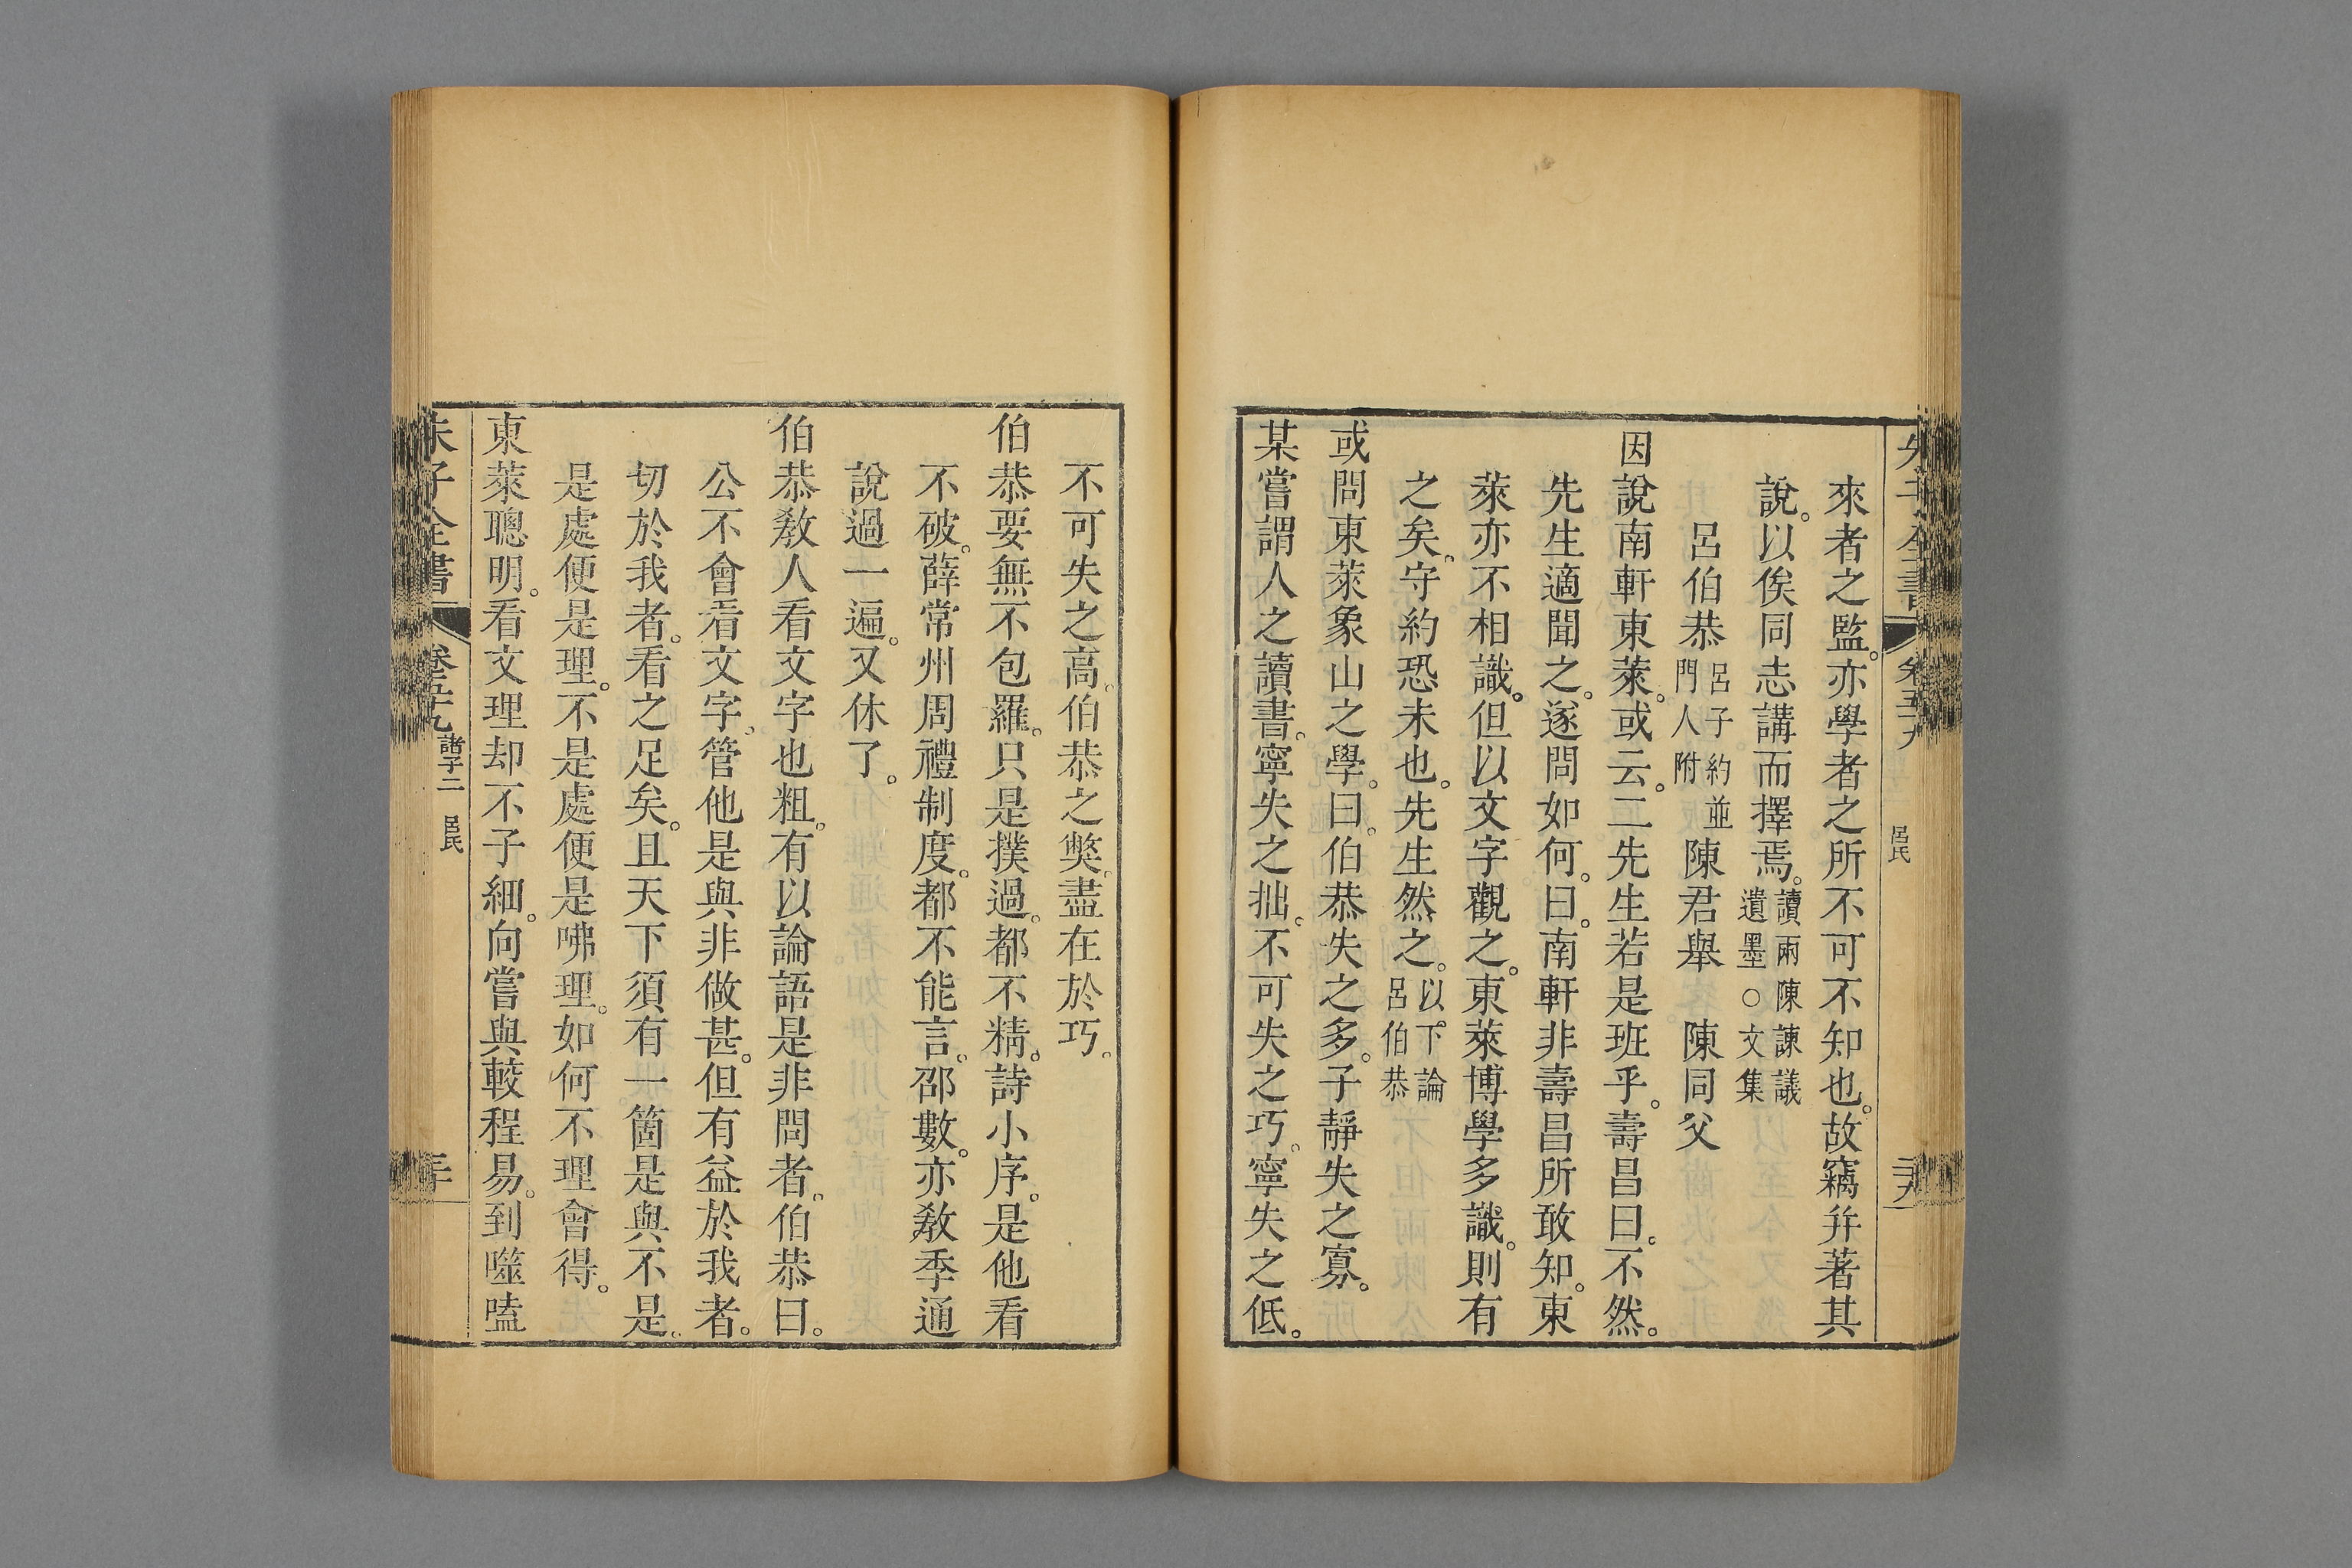 來者之監。亦學者之所不可不知也。故竊幷著其
說。以俟同志講而擇焉。讀兩陳諫議遺墨○文集
呂伯恭呂子約並門人附 陳君舉 陳同父
因說南軒東萊。或云。二先生若是班乎。壽昌曰。不然。
先生適聞之。遂問如何。曰。南軒非壽昌所敢知。東
萊亦不相識。但以文字觀之。東萊博學多識。則有
之矣。守約恐未也。先生然之。以下論呂伯恭
或問東萊象山之學。曰。伯恭失之多。子靜失之寡。
某嘗謂人之讀書。寧失之拙。不可失之巧。寧失之低。
不可失之高。伯恭之獘。盡在於巧。
伯恭要無不包羅。只是撲過。都不精。詩小序。是他看
不破。薛常州周禮制度。都不能言。邵數。亦教季通
說過一遍。又休了。
伯恭教人看文字也粗。有以論語是非問者。伯恭曰。
公不會看文字。管他是與非做甚。但有益於我者。
切於我者。看之足矣。且天下須有一箇是與不是。
是處便是理。不是處便是咈理。如何不理會得。
東萊聰明。看文理却不子細。向嘗與較程易。到噬嗑
朱子全書 卷五十九 諸子二 呂氏